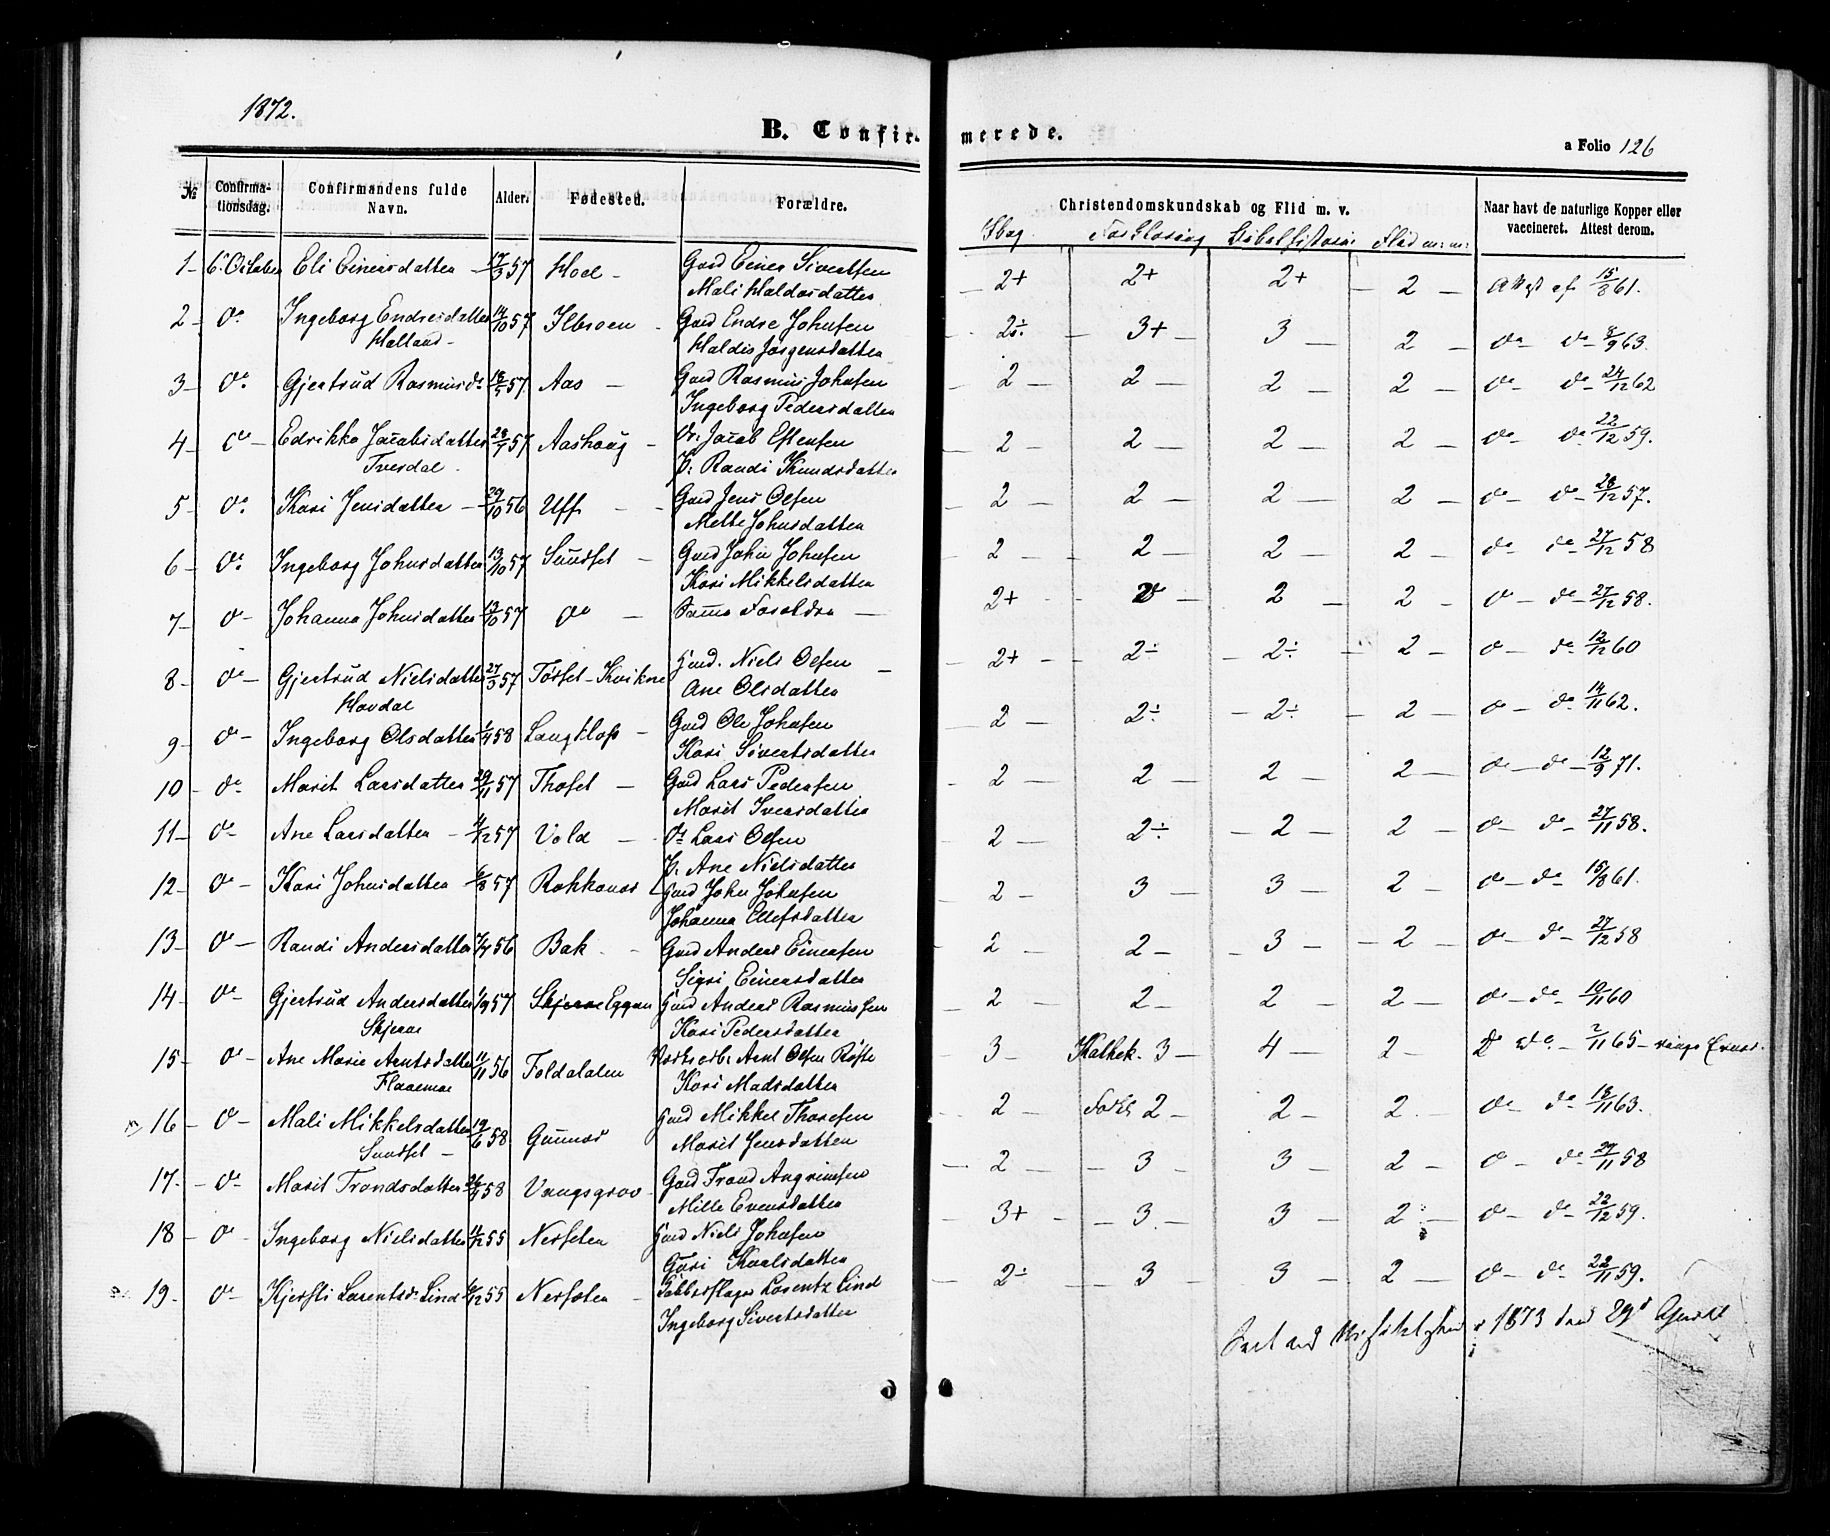 1872.
B. Confirmerede.
a Folio 126
№ Confirmationsdag. Confirmandens fulde Navn. Alder. Fødested. Forældre. Christendomskundskab og Flid m. v. Naar havt de naturlige Kopper eller vaccineret. Attest derom.
Sbog Forklaring Bibelhistorie Flid m: m:
1 - 6. October Eli Einersdatter - 17/3 57 Hoel - Gaard Einer Sivertsen 2+ 2+ 2+ 2 - Attest af 15/8 61.
Mali Haldosdatter
2 - do Ingeborg Endresdatter 14/10 57 Ilbroen - Gaard Endre Johnsen 2÷ 3+ 3 2 - do do 8/9 63.
Halland - Haldis Jørgensdatter
3 - do Gjertrud Rasmusd. 18/5 57. Aas - Gaard Rasmus Johnsen 2 - 2 - 2 - 2 - do do 24/12 62
Ingeborg Pedersdatter
4 - do Edrikka Jacobsdatter 28/7 57 Aashaug - Jacob Estensen 2 2 - 2 - 2 - do do 22/12 59.
Tverdal Randi Knudsdatter
5 - do Kari Jensdatter - 29/10 56 Uff - Gaard Jens Olsen 2 - 2 - 2 - 2 - do do 28/12 57.
Mette Johnsdatter
6 - do Ingeborg Johnsdatter 13/10 57 Sundset - Gaard John Johnsen 2 - 2 - 2 - 2 - do do 27/12 58
Kari Mikkelsdatter
7 - do Johanna Johnsdatter 13/10 57 do - Samme Forældre - 2+ 2 - 2 - 2 - do do 27/12 58.
8 - do Gjertrud Nielsdatter 27/3 57 Tørset - Kvikne Gaard. Niels Olsen 2+ 2÷ 2÷ 2 - do do 12/12 60
Hovdal Ane Olsdatter
9 - do Ingeborg Olsdatter 1/4 58 Langklop - Gaard Ole Johnsen 2 - 2÷ 2÷ 2 - do do 14/11 62.
Kari Sivertsdatter
10 - do Marit Larsdatter 29/11 57 Thoset - Gaard Lars Pedersen 2 - 2 - 2 - 2 - do do 12/9 71.
Marit Iversdatter
11 - do Ane Larsdatter - 4/12 57 Vold - Lars Olsen 2 2÷ 2 - 2 - do do 27/11 58.
Ane Nielsdatter
12 - do Kari Johnsdatter 6/8 57 Rokkones Gaard John Johnsen 2 - 3 - 3 - 2 - do do 15/8 61.
Johanna Ellefsdatter
13 - do Randi Andersdatter 7/7 56 Bak - Gaard Anders Einersen 2 - 2 - 3 - 2 - do do 27/12 58
Sigri Einersdatter
14 - do Gjertrud Andersdatter 1/9 57 Skjerve Eggan Gaard Anders Rasmussen 2 - 2 - 2 - 2 - do do 10/11 60
Skjerve Kari Pedersdatter
15 - do Ane Marie Arntsdatter 11/11 56 Foldalalen Arnt Olsen Røste 3 - Kathek. 3 - 4 - 2 - do do 2/11 65 -
Kari Madsdatter
16 - do Mali Mikkelsdatter 19/6 58 Gunnes Gaard Mikkel Thoresen 2 - Forkl 2 - 2 - 2. do do 13/11 63.
Sundset - Marit Jensdatter
17. - do Marit Trondsdatter 58 Vangsgrov - Gaard Trond Angrimsen 2 - 3 - 3 - 2 - do do 29/11 58
Mille Evensdatter
18 - do Ingeborg Nielsdatter 11/12 55 Nersten Gaard Niels Johnsen 3+ 3 - 3 - 2 - do do 22/12 59.
Guri
19 - do Kjersti Larentsd. Lind 6/12 55 Nersten - Lorentz Lind 2÷ 3 3 - 2 - do do 22/11 59.
Ingeborg Sivertsdatter
1873 den 29de